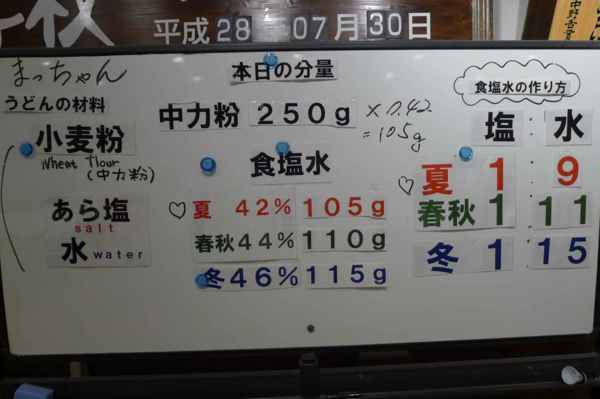 平成28年07月30日
まっちゃん
うどんの材料
小麦粉
Wheat flour
(中力粉)
あら塩
salt
水 water
本日の分量
中力粉 250g ×0.42
=105g
食塩水
♡夏 42% 105g
春秋44% 110g
冬46% 115g
食塩水の作り方
塩:水
♡夏 1:9
春秋 1:11
冬 1:15